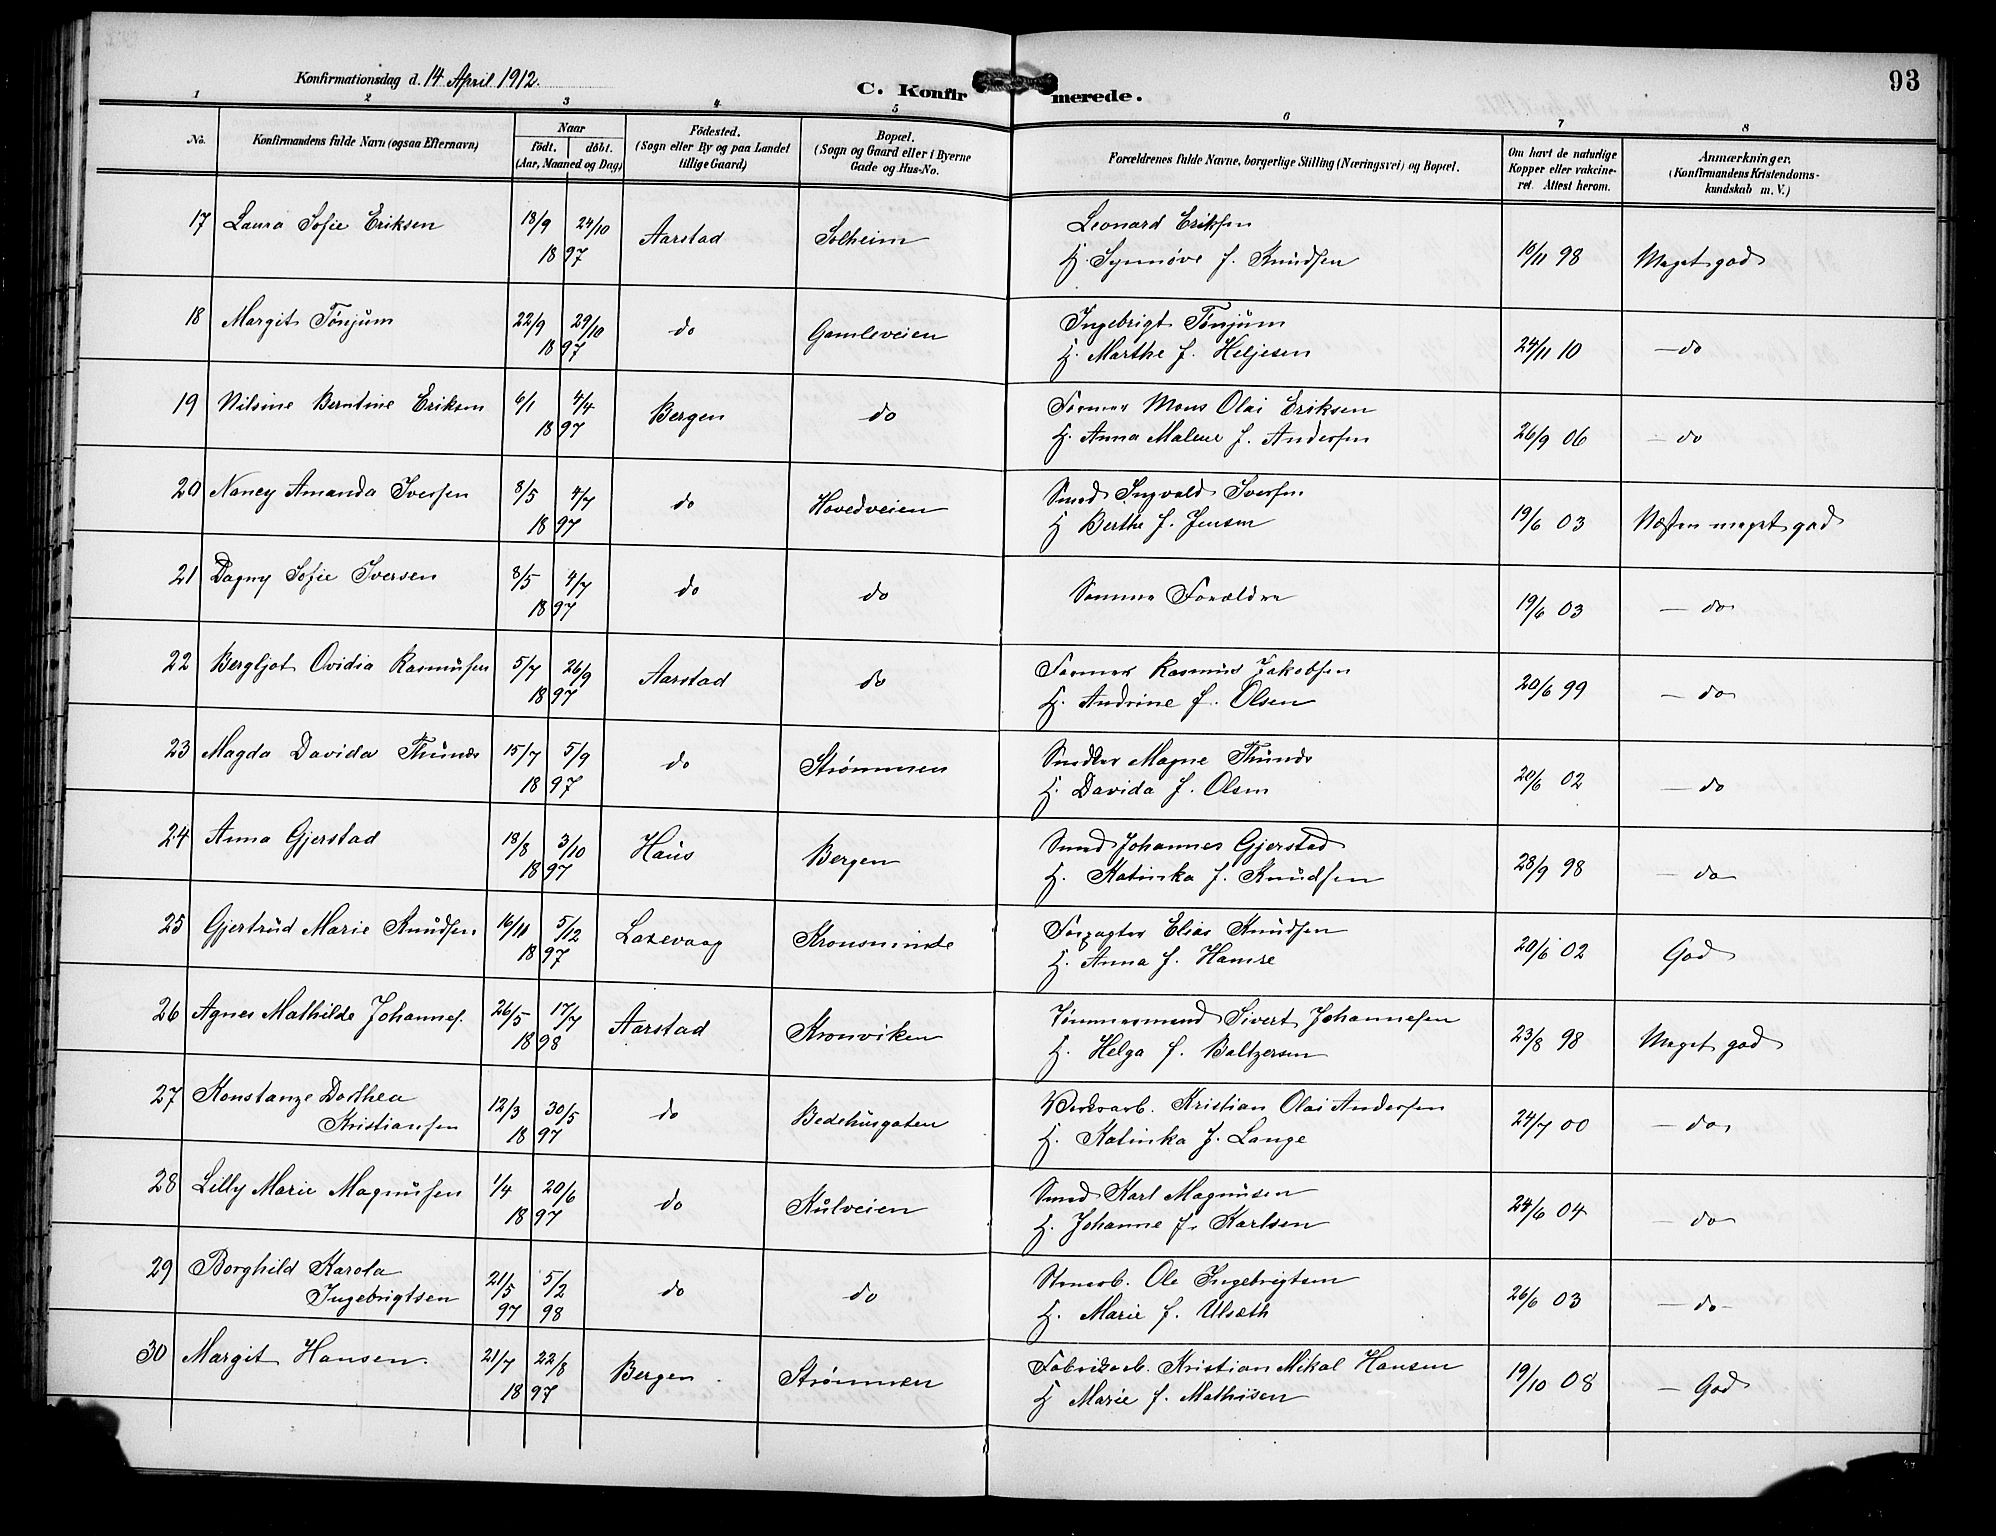 Konfirmationsdag d. 14 April 1912.
C. Konfirmerede.
93
1 2 3 4 5 6 7 8
No.
Konfirmandens fulde Navn (ogsaa Efternavn)
Naar
födt. döbt.
(Aar, Maaned og Dag)
Födested.
(Sogn eller By og paa Landet
tillige Gaard)
Bopæl.
(Sogn og Gaard eller i Byerne
Gade og Hus-No.
Forældrenes fulde Navne, borgerlige Stilling (Næringsvei) og Bopæl.
Om havt de naturlige
Kopper eller vakcine-
ret. Attest herom.
Anmærkninger.
(Konfirmandens Kristendoms-
kundskab m. V.)
17 Laura Sofie Eriksen 18/9 24/10 1897 Aarstad Solheim Leonard Eriksen
H. Synnøve f. Knudsen 10/11 98 Meget god
18 Margit Tønjum 22/9 29/10 1897 do Gamleveien Ingebrigt Tønjum
H. Marthe f. Heljesen 24/11 10 — do
19 Nilsine Berntine Eriksen 6/1 4/4 1897 Bergen do Former Mons Olai Eriksen
H. Anna Malene f. Andersen 26/9 06 — do
20 Nancy Amanda Iversen 8/5 4/7 1897 do Hovedveien Smed Ingvald Iversen
H Berthe f. Jensen 19/6 03 Næsten meget god
21 Dagny Sofie Iversen 8/5 4/7 1897 do do Samme Forældre 19/6 03 — do
22 Bergljot Ovidia Rasmusen 5/7 26/9 1897 Aarstad do Former Rasmus Jakobsen
H. Andrine f. Olsen 20/6 99 — do
23 Magda Davida Thunes 15/7 5/9 1897 do Strømmen Magne Thunes
H. Davida f. Olsen 20/6 02 — do
24 Anna Gjerstad 18/8 3/10 1897 Haus Bergen Smed Johannes Gjerstad
H. Katinka f. Knudsen 28/9 98 — do
25 Gjertrud Marie Knudsen 16/11 5/12 1897 Laxevaag Kronsminde Forpagter Elias Knudsen
H. Anna f. Hamre 20/6 02 God
26 Agnes Mathilde Johannes. 26/5 17/7 1898 Aarstad Kronviken Tømmermand Sivert Johannesen
H. Helga f. Baltzersen 23/8 98 Meget god
27 Konstanze Dorthea
Kristiansen 12/3 30/5 1897 do Bedehusgaten Verksarb. Kristian Olai Andersen
H. Katinka f. Lange 24/7 00 — do
28 Lilly Marie Magnusen 1/4 20/6 1897 do Kulveien Smed Karl Magnusen
H. Johanne f. Karlsen 24/6 04 — do
29 Borghild Karola
Ingebrigtsen 21/5 97 5/2 98 do do Stenarb. Ole Ingebrigtsen
H. Marie f. Ulsæth 26/6 03 — do —
30 Margit Hansen. 21/7 22/8 1897 Bergen Strømmen Fabrikarb. Kristian Mikal Hansen
H Marie f. Mathisen 19/10 08 — God